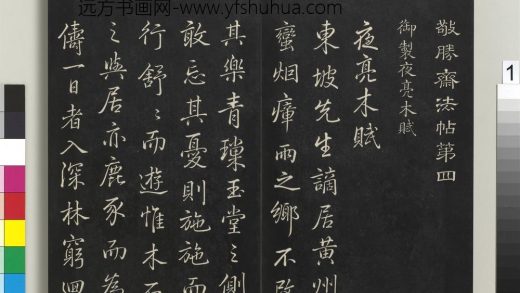 远方书画网-www.yfshuhua.com
敬勝齋法帖第四
御製夜亮木賦
夜亮木賦
東坡先生謫居黄州
蠻烟瘴雨之鄉不改
其樂青璅玉堂之側
敢忘其憂則施施而
行舒舒而遊惟木石
之與居亦鹿豕而為
儔一日者入深林窮迴
1